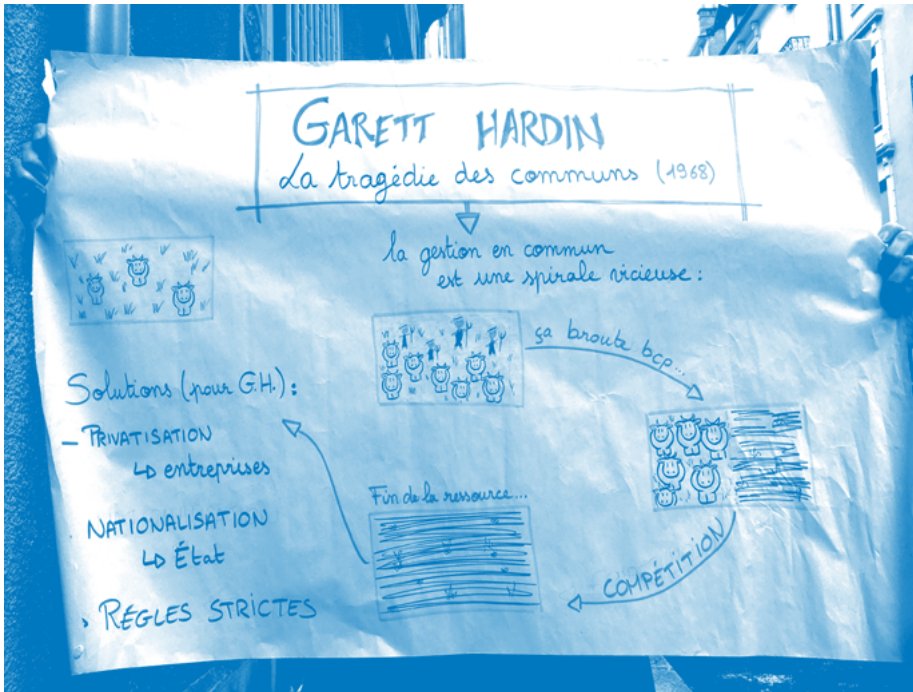 GARETT HARDIN
La tragédie des communs (1968)
la gestion en commun
est une spirale vicieuse :
ça broute bcp...
COMPÉTITION
Fin de la ressource...
Solutions (pour G.H.) :
- PRIVATISATION
↳ entreprises
NATIONALISATION
↳ État
> RÈGLES STRICTES